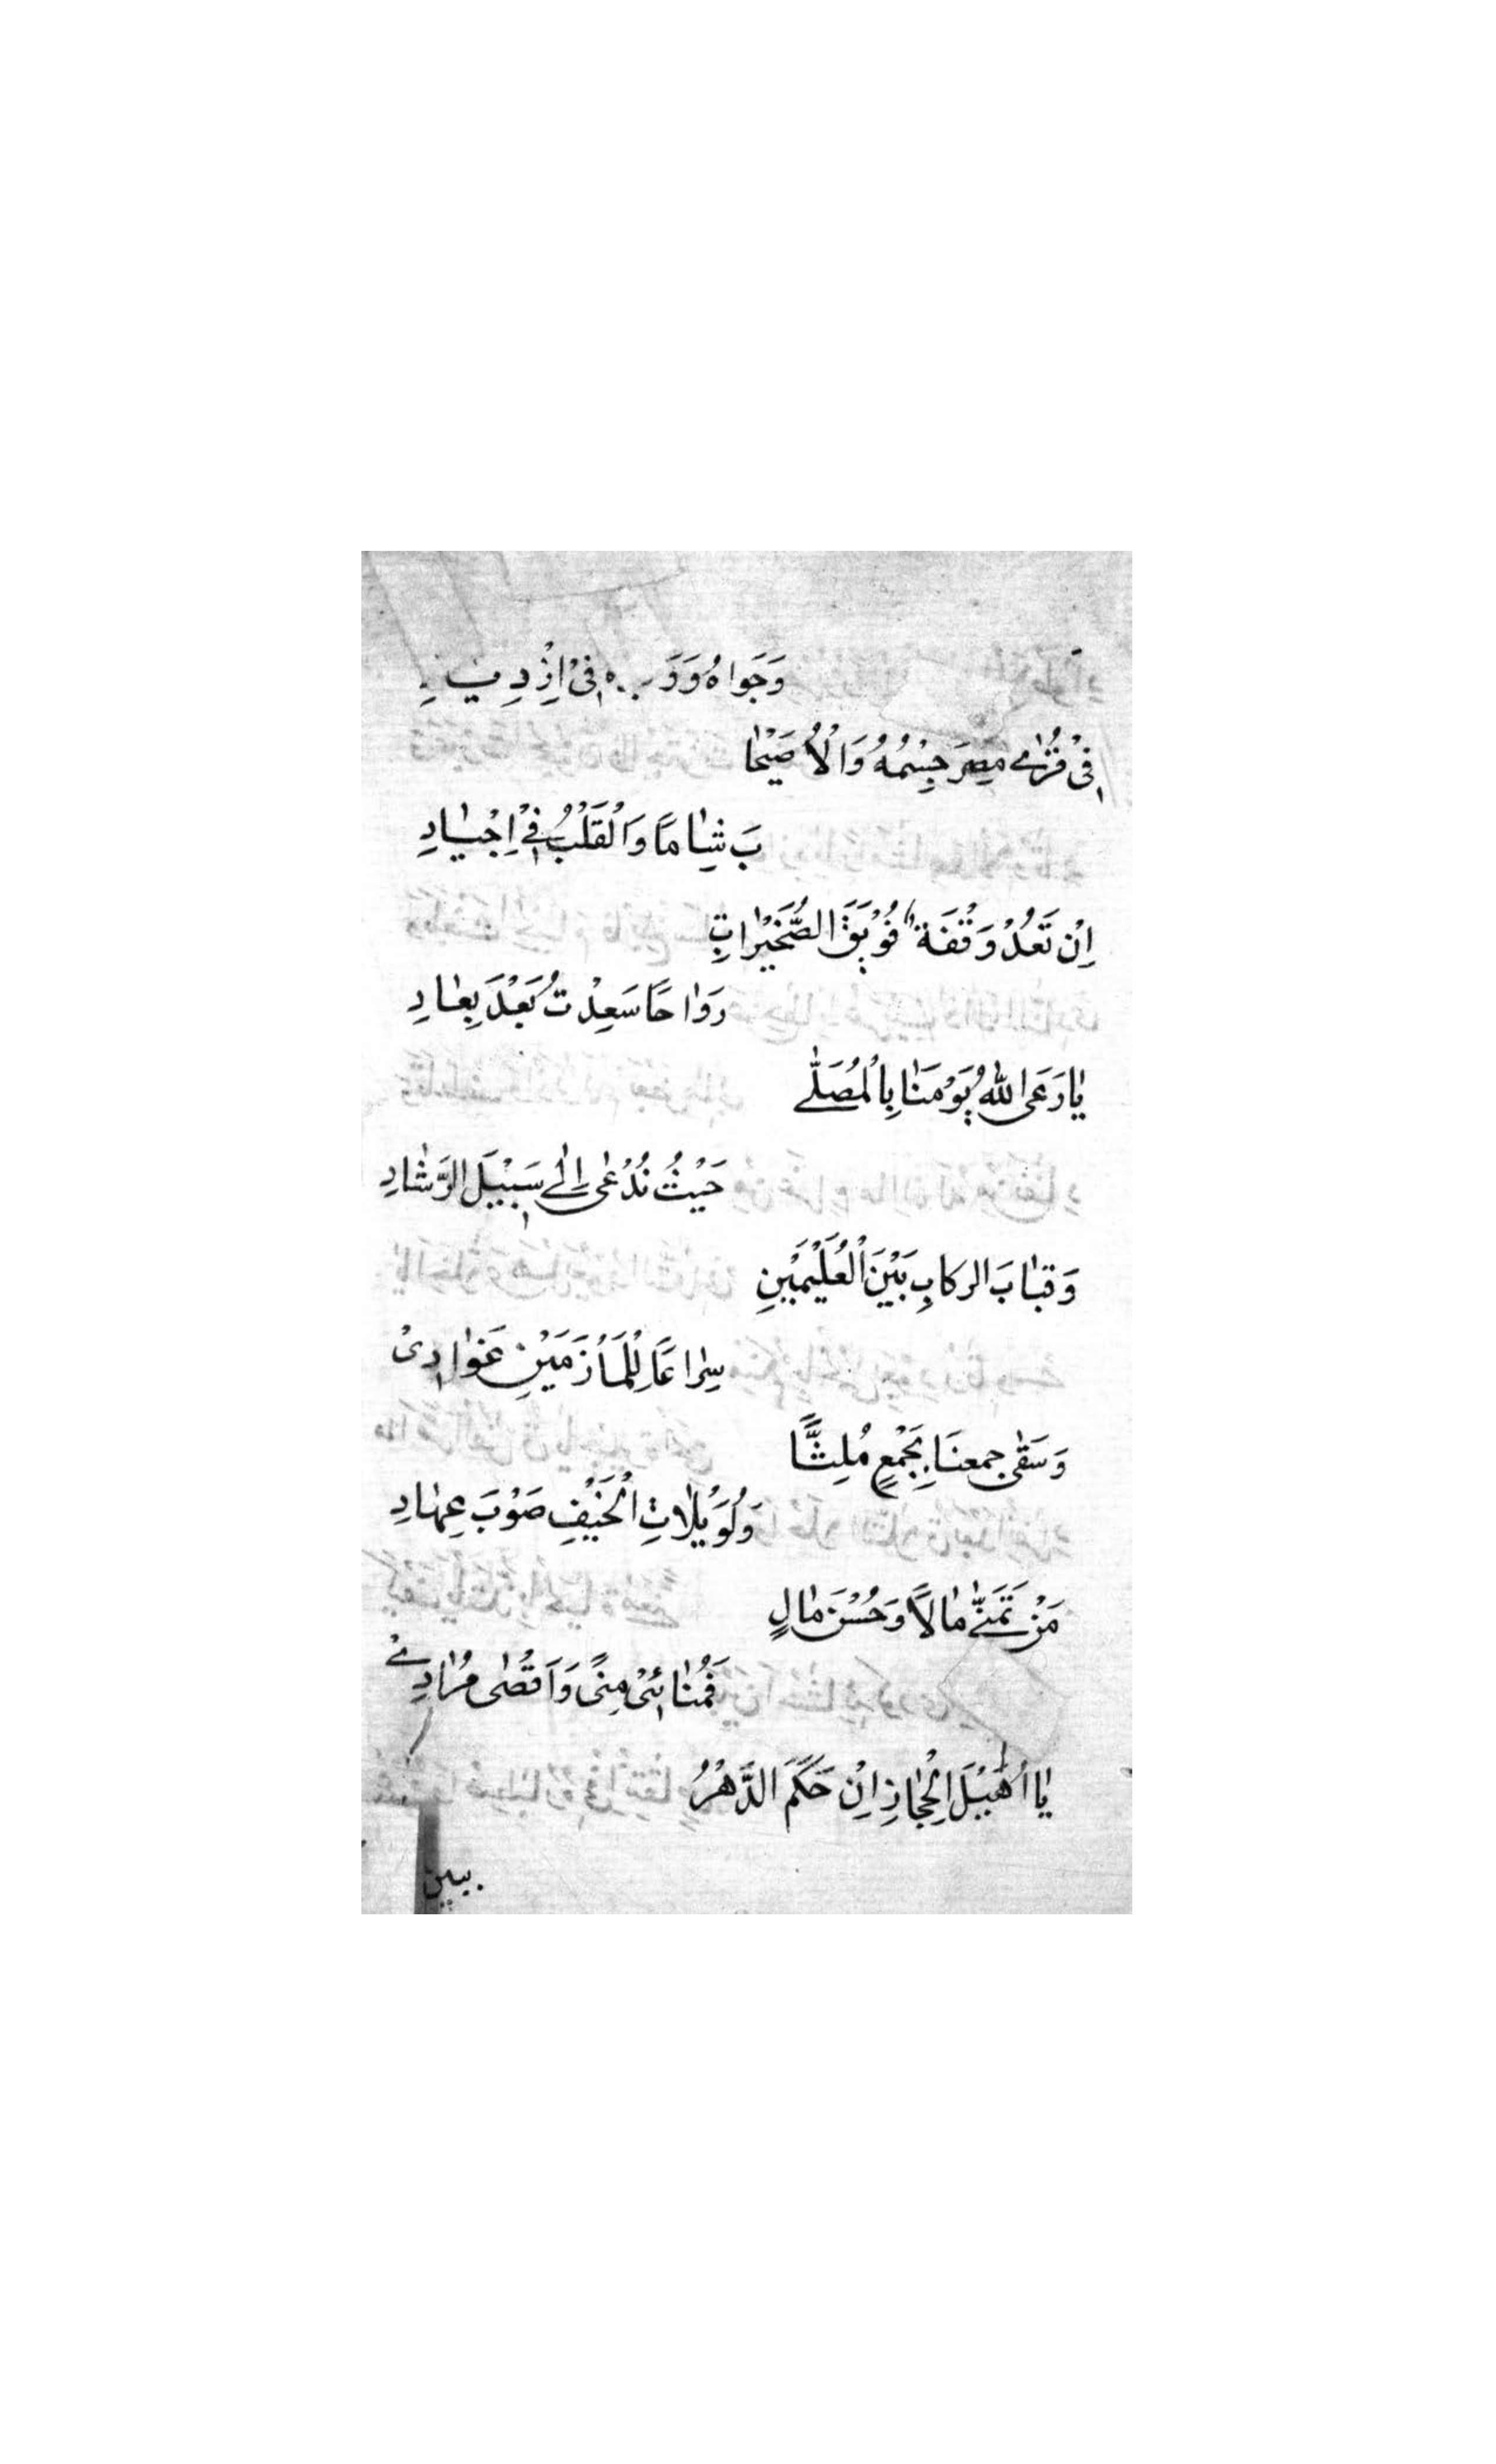 وَجَوَاهُ وَوَ فِىْ اِزْدِيَـ
فِىْ قُرٰى مِصْرَ جِسْمُهُ وَالْاُصَيْحَا
بَ شِٰامًا وَالْقَلْبُ فِىْ اِجْيٰادِ
اِنْ تَعُدْ وَقْفَةٌ فُوَيْقَ الصُّخَيْرٰاتِ
رَوٰاحًا سَعِدْتُ بَعْدَ بِعٰادِ
يٰا رَعَى اللّٰهُ يَوْمَنٰا بِالْمُصَلّٰى
حَيْثُ نُدْعٰى اِلٰى سَبِيْلَ الرَّشٰادِ
وَقبٰابَ الركابِ بَيْنَ الْعُلَيْمَيْنِ
سِرٰاعًا لِلْمَأْزَمَيْنِ غَوٰادِىْ
وَسَقٰى جمعنَا بِجَمْعٍ مُلِثًّا
وَلُوَيْلٰاتِ الْخَيْفِ صَوْبَ عِهٰادِ
مَنْ تَمَنّٰى مٰالًا وَحُسْنَ مٰالٍ
فَمُنٰائِىْ مِنًى وَاَقْصٰى مُرٰادِىْ
يٰا اُهَيْلَ الْحِجٰازِ اِنْ حَكَمَ الدَّهْرُ
ببين